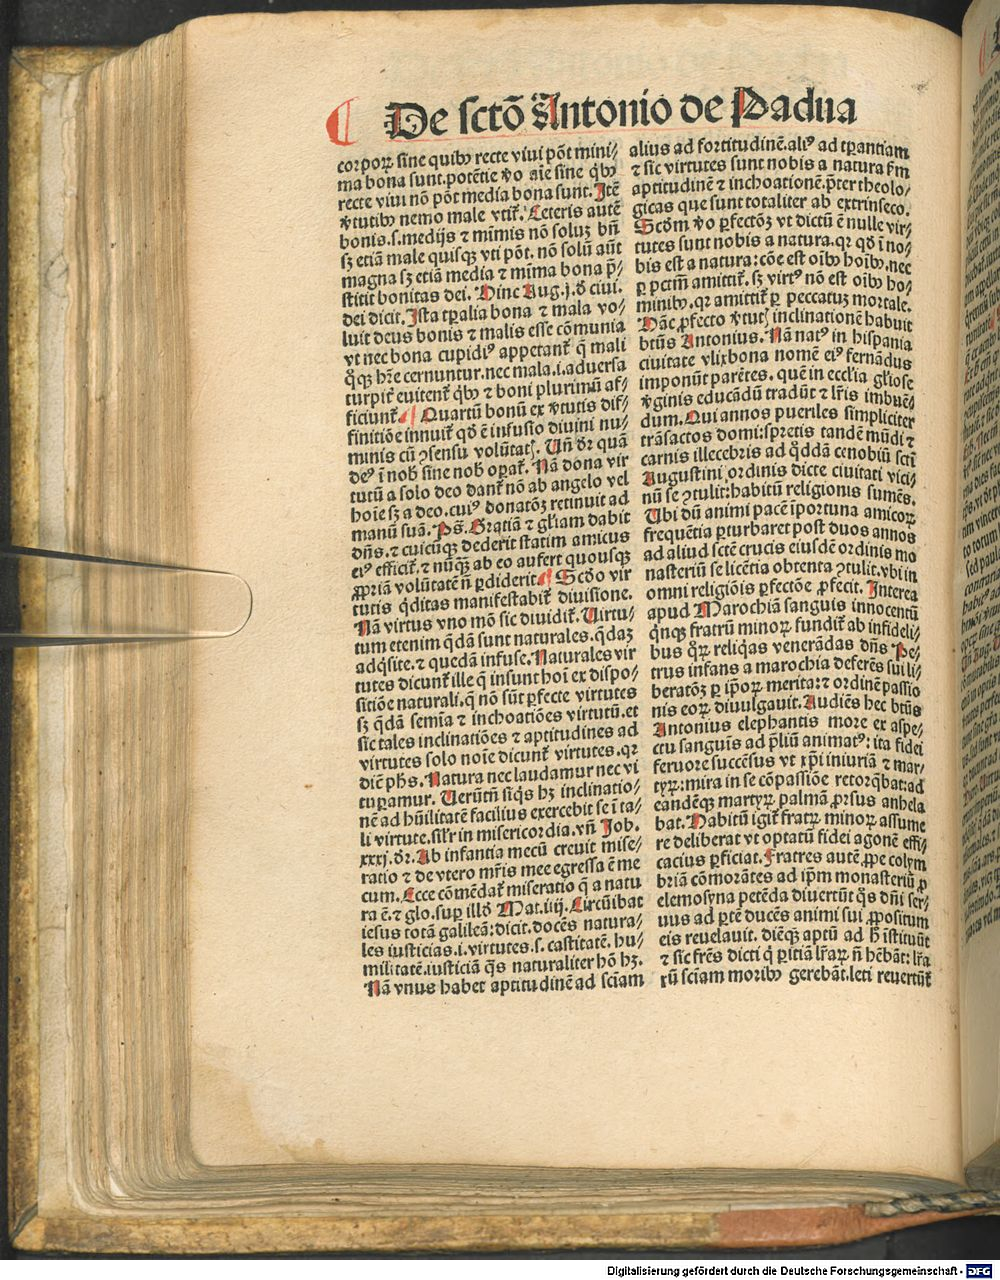 ¶ De sctō Antonio de Padua
corporꝝ sine quibꝫ recte viui pōt mini⸗
ma bona sunt. potētie ṽo aīe sine q̇bꝫ
recte viui nō pōt media bona sunt. Itē
ṽtutibꝫ nemo male vtit᷑. Ceteris autē
bonis .s. medijs ⁊ mīmis nō soluꝫ bn̄
sꝫ etiā male quisqꝫ vti pōt. nō solū aūt
magna sꝫ etiā media ⁊ mīma bona p̄⸗
stitit bonitas dei. Hinc Aug. j. d̓ ciui.
dei dicit. Ista tꝑalia bona ⁊ mala vo⸗
luit deus bonis ⁊ malis esse cōmunia
vt nec bona cupidiꝰ appetant᷑ q̄ mali
q̊qꝫ hr̄e cernuntur. nec mala .i. aduersa
turpit᷑ euitent᷑ q̇bꝫ ⁊ boni plurimū af⸗
ficiunt᷑. ¶ Quartū bonū ex ṽtutis dif⸗
finitiōe innuit᷑ qd̓ ē infusio diuini nu⸗
minis cū ꝯsensu volūtatꝭ. Vn̄ dr̄ quā
deꝰ ī nob̓ sine nob̓ oꝑat᷑. Nā dona vir
tutū a solo deo dant᷑ nō ab angelo vel
hoīe sꝫ a deo. cuiꝰ donatōꝫ retinuit ad
manū suā. Ps̄. Gratiā ⁊ gl̓iam dabit
dn̄s. ⁊ cuicūqꝫ dederit statim amicus
eiꝰ efficit᷑. ⁊ nūqꝫ ab eo aufert quousqꝫ
ꝓpriā volūtatē n̄ ꝑdiderit. ¶ Scd̓o vir
tutis q̇ditas manifestabit᷑ diuisione.
Nā virtus vno mō sic diuidit᷑. Virtu⸗
tum etenim q̄dā sunt naturales. q̄daꝫ
adq̇site. ⁊ quedā infuse. Naturales vir
tutes dicunt᷑ ille q̄ insunt hoī ex dispo⸗
sitiōe naturali. q̄ nō sūt ꝑfecte virtutes
sꝫ q̄dā semīa ⁊ inchoatiōes virtutū. et
sic tales inclinatiōes ⁊ aptitudines ad
virtutes solo noīe dicunt᷑ virtutes. qꝛ
diē ph̓s. Natura nec laudamur nec vi
tuꝑamur. Verūtn̄ siq̇s hꝫ inclinatio⸗
nē ad hūilitatē facilius exercebit se ī ta⸗
li virtute. sil̓r in misericordia. vn̄ Job.
xxxj. dr̄. Ab infantia mecū creuit mise⸗
ratio ⁊ de vtero mr̄is mee egressa ē me
cum. Ecce cōmēdat᷑ miseratio q̄ a natu
ra ē. ⁊ glo. suꝑ illd̓ Mat. iiij. Circūibat
iesus totā galileā: dicit. docēs natura⸗
les iusticias .i. virtutes .s. castitatē. hu⸗
militatē. iusticiā q̄s naturaliter hō hꝫ.
Nā vnus habet aptitudinē ad sciam
alius ad fortitudinē. aliꝰ ad tꝑantiam
⁊ sic virtutes sunt nobis a natura ẜm
aptitudinē ⁊ inchoationē. p̄ter theolo⸗
gicas que sunt totaliter ab extrinseco.
Scd̓m ṽo ꝑfectōꝫ vt dictū ē nulle vir⸗
tutes sunt nobis a natura. qꝛ qd̓ ī no⸗
bis est a natura: cōe est oībꝫ hoībꝫ. nec
ꝑ pctm̄ amittit᷑. sꝫ virtꝰ nō est oībꝫ ho⸗
minibꝫ. qꝛ amittit᷑ ꝑ peccatuꝫ mortale.
Hāc ꝓfecto ṽtutꝭ inclinationē habuit
btūs Antonius. Nā natꝰ in hispania
ciuitate vlixbona nomē eiꝰ fernādus
imponūt parētes. quē in eccl̓ia gl̓iose
ṽginis educādū tradūt ⁊ lr̄is imbuē⸗
dum. Qui annos pueriles simpliciter
trāsactos domi: spretis tandē mūdi ⁊
carnis illecebris ad q̊ddā cenobiū scti̇
Augustini ordinis dicte ciuitati vici⸗
nū se ꝯtulit: habitū religionis sumēs.
Vbi dū animi pacē īportuna amicoꝝ
frequētia ꝑturbaret post duos annos
ad aliud sctē crucis eiusdē ordinis mo
nasteriū se licētia obtenta ꝯtulit. vbi in
omni religiōis ꝑfectōe ꝓfecit. Interea
apud Marochiā sanguis innocentū
q̇nqꝫ fratrū minoꝝ fundit᷑ ab infideli⸗
bus q̊ꝝ reliq̇as venerādas dn̄s Pe⸗
trus infans a marochia deferēs sui li⸗
beratōꝫ ꝑ ip̄oꝝ merita: ⁊ ordinē passio
nis eoꝝ diuulgauit. Audiēs hec btūs
Antonius elephantis more et aspe⸗
ctu sanguīs ad p̄liū animatꝰ: ita fidei
feruore succēsus vt xp̄i iniuriā ⁊ mar⸗
tyꝝ: mira in se cōpassiōe retorq̄bat: ad
eandēqꝫ martyꝝ palmā ꝓrsus anhela
bat. Habitū igit᷑ fratꝝ minoꝝ assume
re deliberat vt optatū fidei agonē effi⸗
cacius ꝑficiat. Fratres autē ꝓpe colym
briā cōmorātes ad ip̄m monasteriū ꝓ
elemosyna petēda diuertūt q̊s dn̄i ser⸗
uus ad ꝑtē ducēs animi sui ꝓpositum
eis reuelauit. diēqꝫ aptū ad h̓ īstituūt
⁊ sic fr̄es dicti q̇ ꝑitiā lr̄aꝝ n̄ hēbāt: lr̄a
rū sciam moribꝫ gerebāt. leti reuertūt᷑
Digitalisierung gefördert durch die Deutsche Forschungsgemeinschaft - DFG